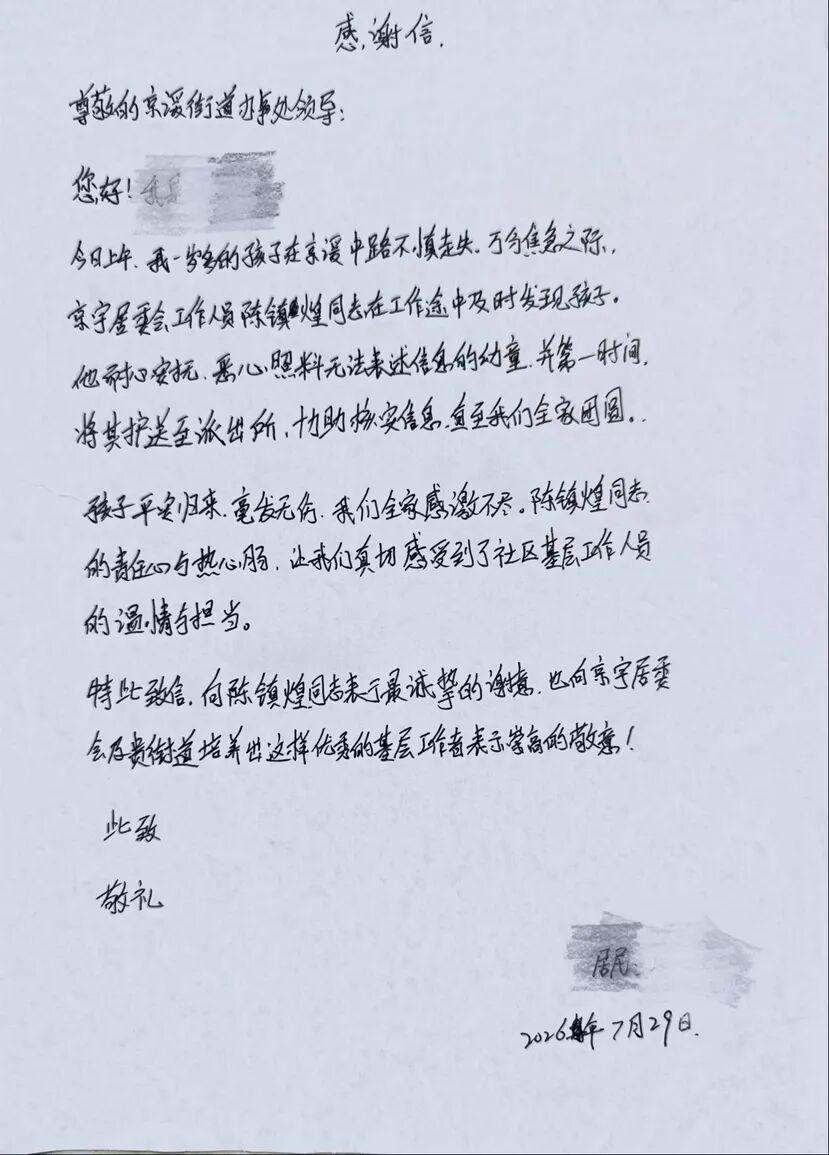 感谢信.
尊敬的京溪街道办事处领导:
您好!
今日上午,我一岁多的孩子在京溪中路不慎走失,万分焦急之际,
京宇居委会工作人员陈镇煌同志在工作途中及时发现孩子。
他耐心安抚、悉心照料无法表述信息的幼童,并第一时间,
将其护送至派出所,协助核实信息,直至我们全家团圆。
孩子平安归来,毫发无伤,我们全家感激不尽。陈镇煌同志
的责任心与热心肠,让我们真切感受到了社区基层工作人员
的温情与担当。
特此致信,向陈镇煌同志表示最诚挚的谢意,也向京宇居委
会及贵街道培养出这样优秀的基层工作者表示崇高的敬意!
此致
敬礼
居民:
2026年7月29日.